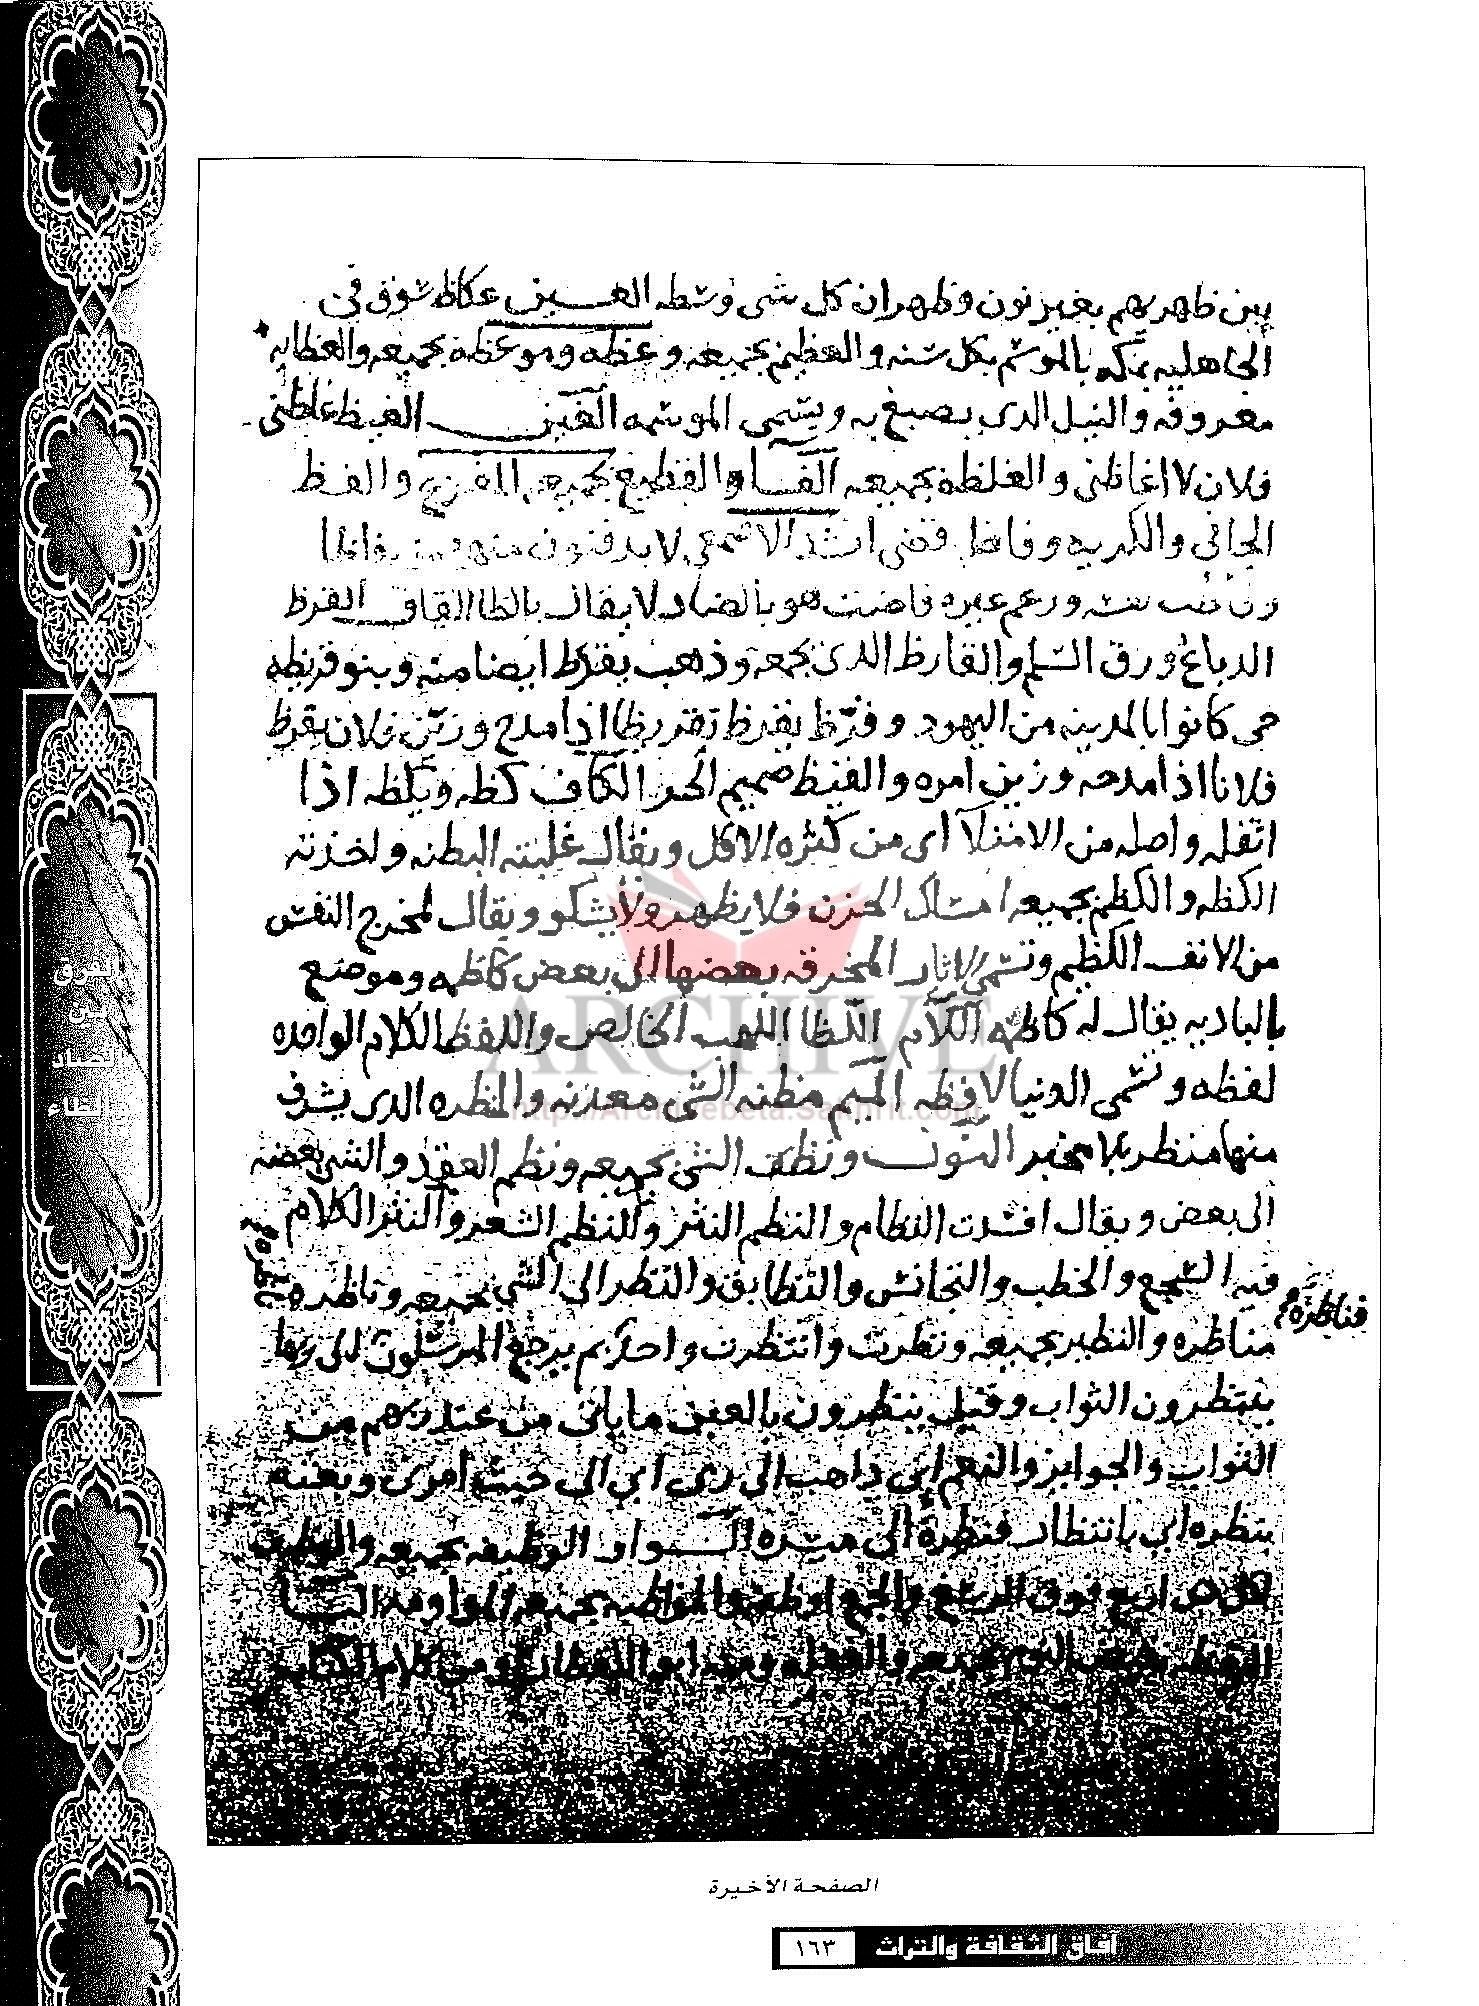 بين ظهريهم بغير نون وظهران كل شي وسطه العين عكاظ سوق في
الجاهليه بمكه بالموسم بكل سنه والعظيم بجميعه وعظه وموعظه بجميعه والعظايه
معروفه والنيل الذي يصبغ به ويسمى الموسمه الغين الغيظ غاظني
فلان لا اغاظني والغلظة بجميعه الفا والفظيع بجميعه والفظ
الجافي والكريه وفاظ قضى انشد الاصمعي لا يدفنون منهم من فاظا
وزعم غيره فاضت هو بالضاد لا يقال بالظا القاف القرظ
الدباغ ورق السلم والقارظ الذي يجمعه وذهب يقرظ ايضا منه وبنو قريظه
حي كانوا بالمدينه من اليهود وقرظ يقرظ تقريظا اذا مدح وزين فلان يقرظ
فلانا اذا مدحه وزين امره والقيظ صميم الحر الكاف كظه ويكظه اذا
اثقله واصله من الامتلآ اي من كثره الاكل ويقال غلبته البطنه واخذته
الكظه والكظم بجميعه امساك الحزن فلا يظهر ولا يشكو ويقال لمخرج النفس
من الانف الكظيم وتسمى الابار المخرقه بعضها الى بعض كاظمه وموضع
بالباديه يقال له كاظمه اللام اللظا اللهب الخالص واللفظ الكلام الواحده
لفظه وتسمى الدنيا لافظه الميم مظنه الشي معدنه والمنظره الذي يشرف
منها منظر بلا مخبر النون ونظف الشي بجميعه ونظم العقد والشي بعضه
الى بعض ويقال افسدت النظام والنظم النثر والنظم الشعر والنثر الكلام
فيه السجع والخطب والتجانس والتطابق والنظر الى الشي بجميعه وناظره
فناظرة بم
مناظره والنظير بجميعه ونظرت وانتظرت واحد بم يرجع المرسلون اي بما
ينتظرون الثواب وقيل ينظرون بالعين ما ياتي من عند ربهم من
الثواب والجوايز والنعم اني ذاهب الى ربي اي الى حيث امرني وبعثه
بنظره اي بانتظار فنظرة الى ميسره الواو الوظيفه بجميعه والوظيف
لكل ذي اربع فوق الرسغ والجمع اوظفه والمواظبه بجميعه المداومه اليا
اليقظه نقيض النوم بجميعه والغفله
الفرق
بين
الضاد
والظاء
الصفحة الأخيرة
آفاق الثقافة والتراث ١٦٣
ARCHIVE
http://Archivebeta.Sakhrit.com